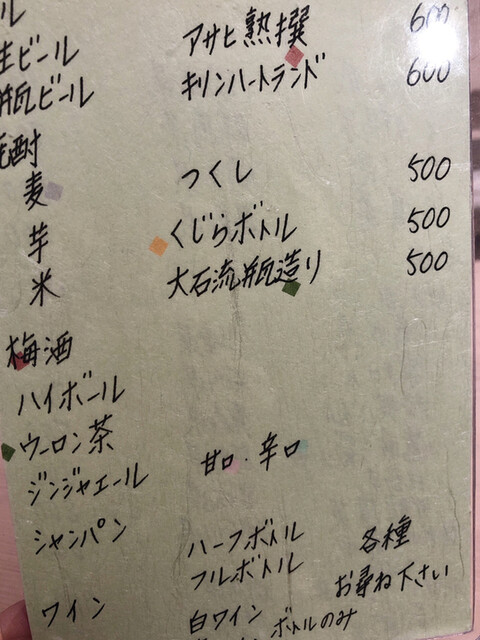 ル
生ビール アサヒ熟撰 600
瓶ビール キリンハートランド 600
焼酎
麦 つくし 500
芋 くじらボトル 500
米 大石流瓶造り 500
梅酒
ハイボール
ウーロン茶
ジンジャエール 甘口・辛口
シャンパン ハーフボトル 各種
フルボトル お尋ね下さい
ワイン 白ワイン
ボトルのみ